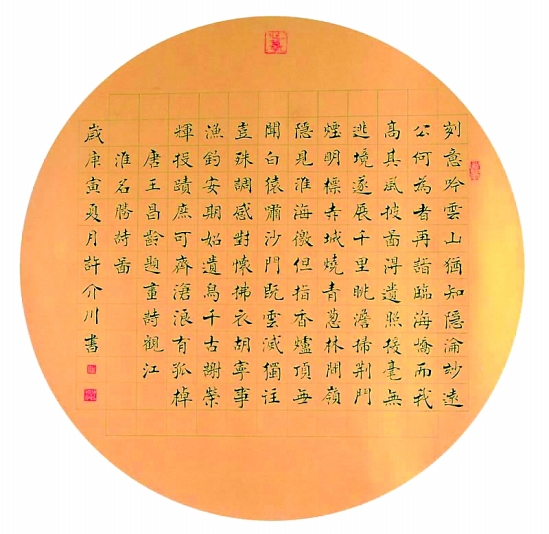 刻意吟雲山猶知隱淪妙遠
公何為者再詣臨海嶠而我
高其風披啚淂遺照援毫無
逃境遂展千里眺澹掃荊門
煙明標赤城燒青蔥林間嶺
隱見淮海徼但指香爐頂無
聞白猿嘯沙門既雲滅獨往
豈殊調感對懷拂衣胡寧事
漁釣安期始遺舄千古謝榮
輝投蹟庶可齊滄浪有孤棹
唐王昌齡題畫詩觀江
淮名勝詩啚
歲庚寅夏月許介川書